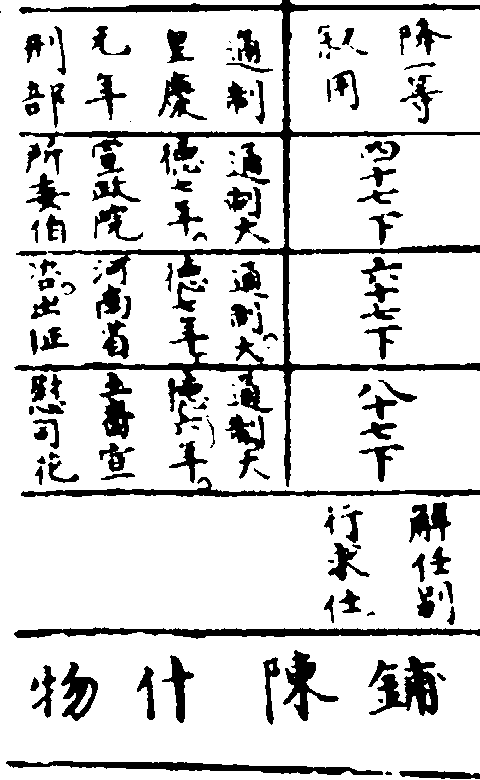 降一等
叙用
四十七下
六十七下
八十七下
解任别
行求仕
通制
皇慶
元年
刑部
通制大
德七年
宣政院
所委伯
通制大
德七年
河南省
咨出征
通制大
德六年
宣
慰司花
鋪陳什物